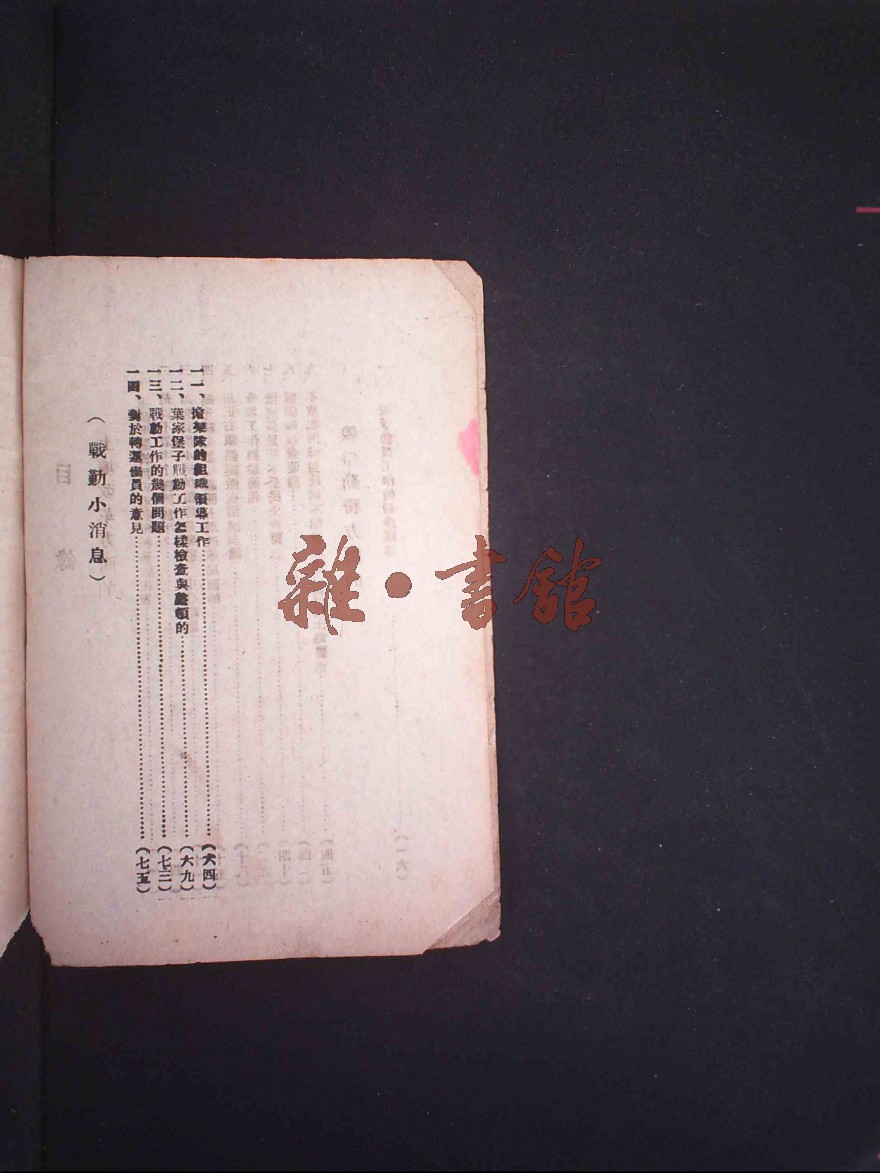 一一、擔架隊的組織領導工作……(六四)
一二、葉家堡子戰勤工作怎樣檢查與整頓的……(六九)
一三、戰勤工作的幾個問題……(七三)
一四、對於轉運傷員的意見……(七五)
(戰勤小消息)
雜·書館